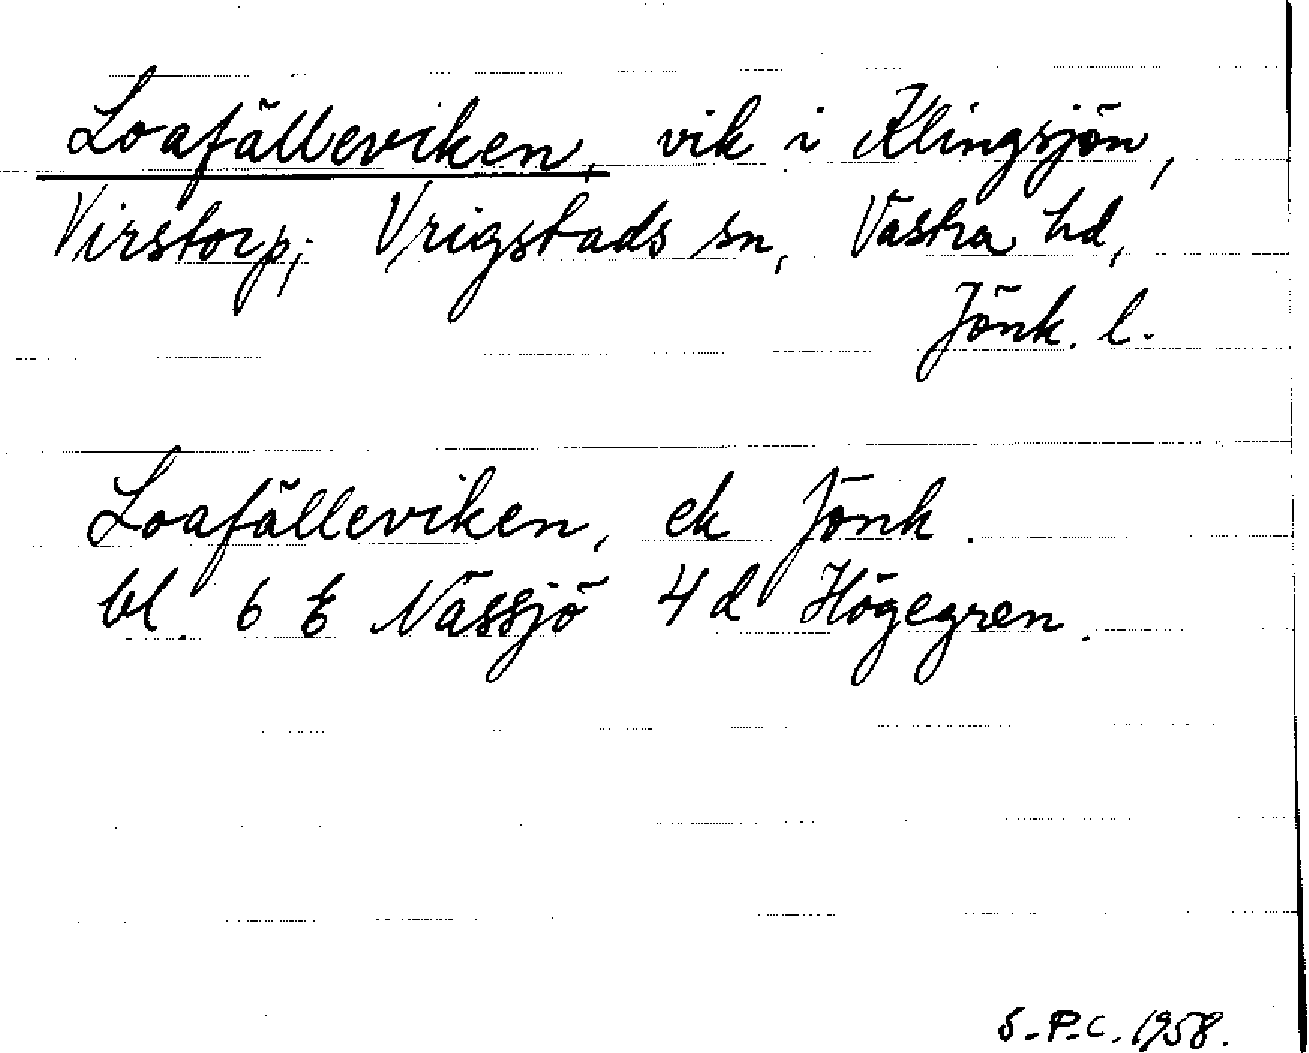 Loafälleviken, vik i Klingsjön,
Virstorp, Vrigstads sn, Västra hd,
Jönk. l.
Loafälleviken, ek Jönk.
bl. 6 E Nässjö 4 d Högegren.
S.P.C. 1958.